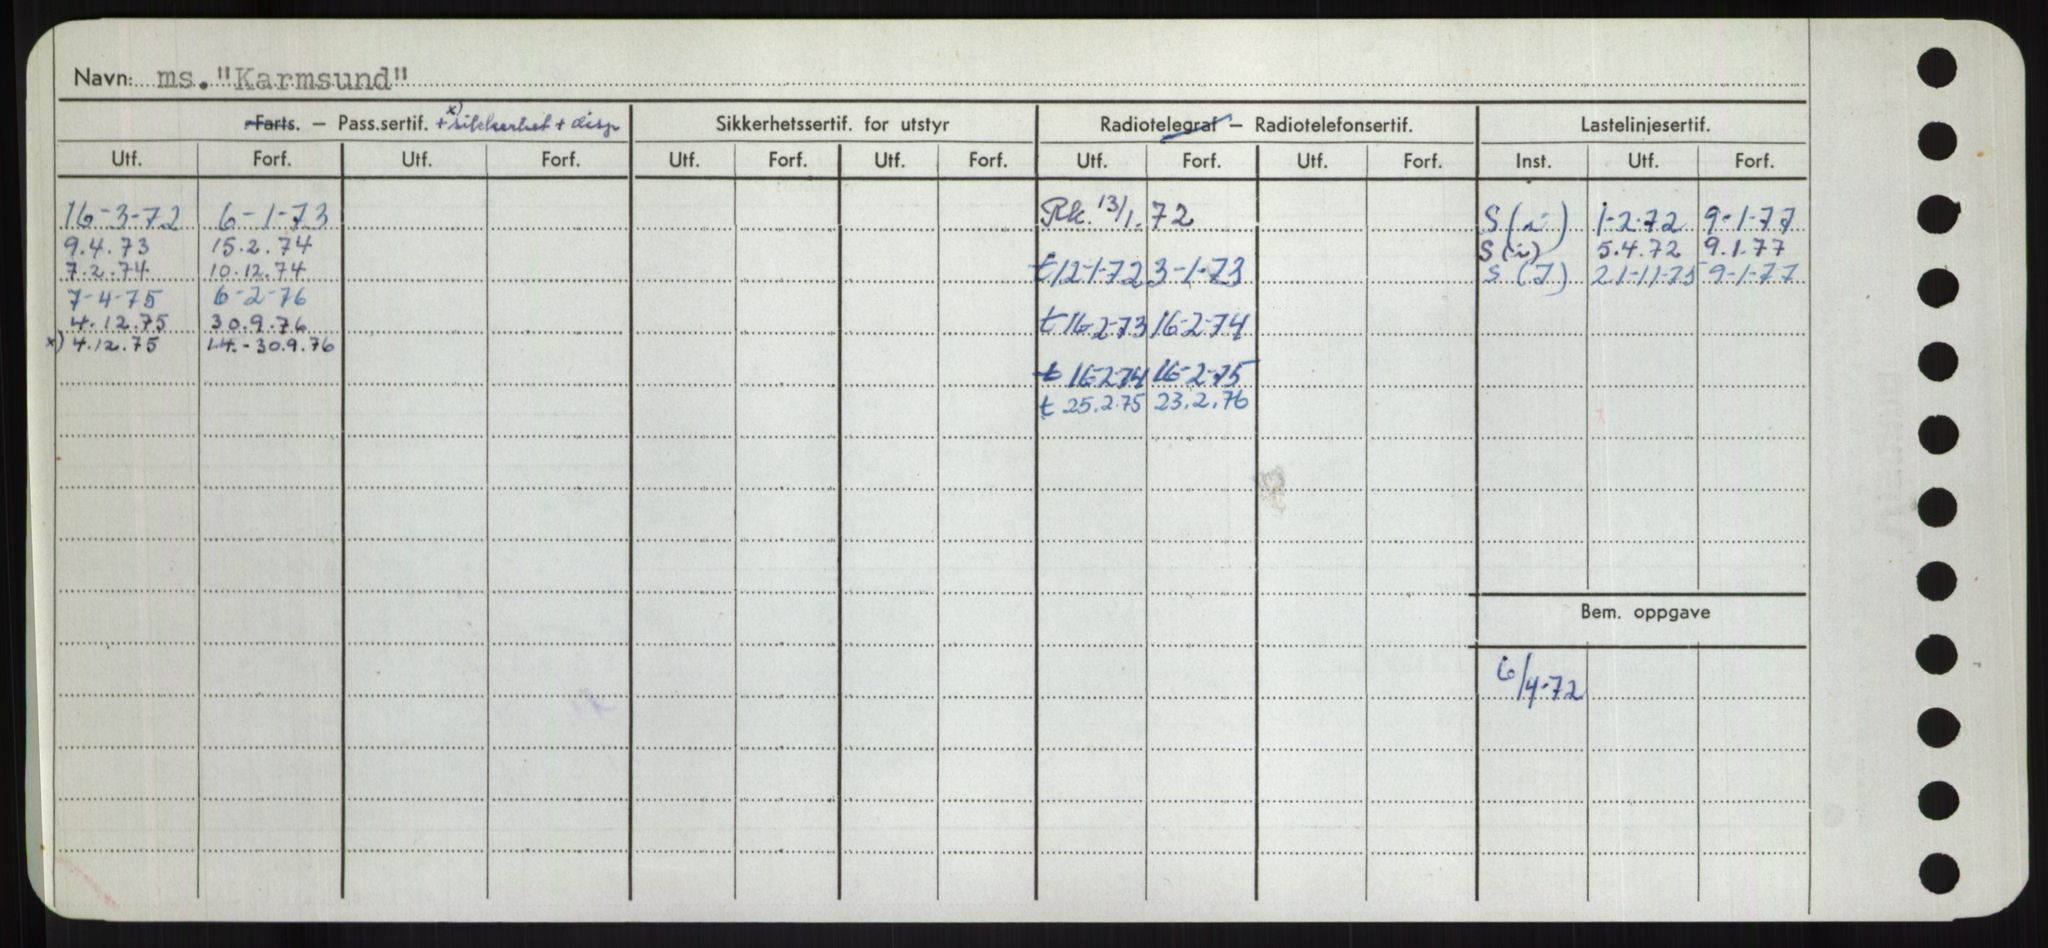 Navn: ms. "Karmsund"
Farts. – Pass.sertif. + x) sikkerhet + disp
Sikkerhetssertif. for utstyr
Radiotelegraf – Radiotelefonsertif.
Lastelinjesertif.
Utf. Forf. Utf. Forf. Utf. Forf. Utf. Forf. Utf. Forf. Utf. Forf. Inst. Utf. Forf.
16-3-72 6-1-73 Rk. 13/1.72 S(i) 1-2-72 9-1-77
9.4.73 15.2.74 S(i) 5.4.72 9.1.77
7.2.74 10.12.74 t 12-1-72 3-1-73 S(I) 21-11-75 9-1-77
7-4-75 6-2-76
4.12.75 30.9.76 t 16-2-73 16-2-74
x) 4.12.75 1.4.-30.9.76
t 16-2-74 16-2-75
t 25.2.75 23.2.76
Bem. oppgave
6/4-72